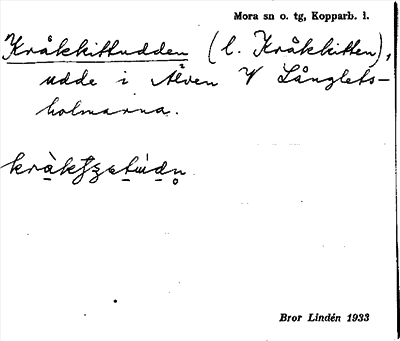 Mora sn o. tg, Kopparb. l.
Kråkkittudden (l. Kråkkitten),
udde i Älven V Långlets-
holmarna.
Bror Lindén 1933